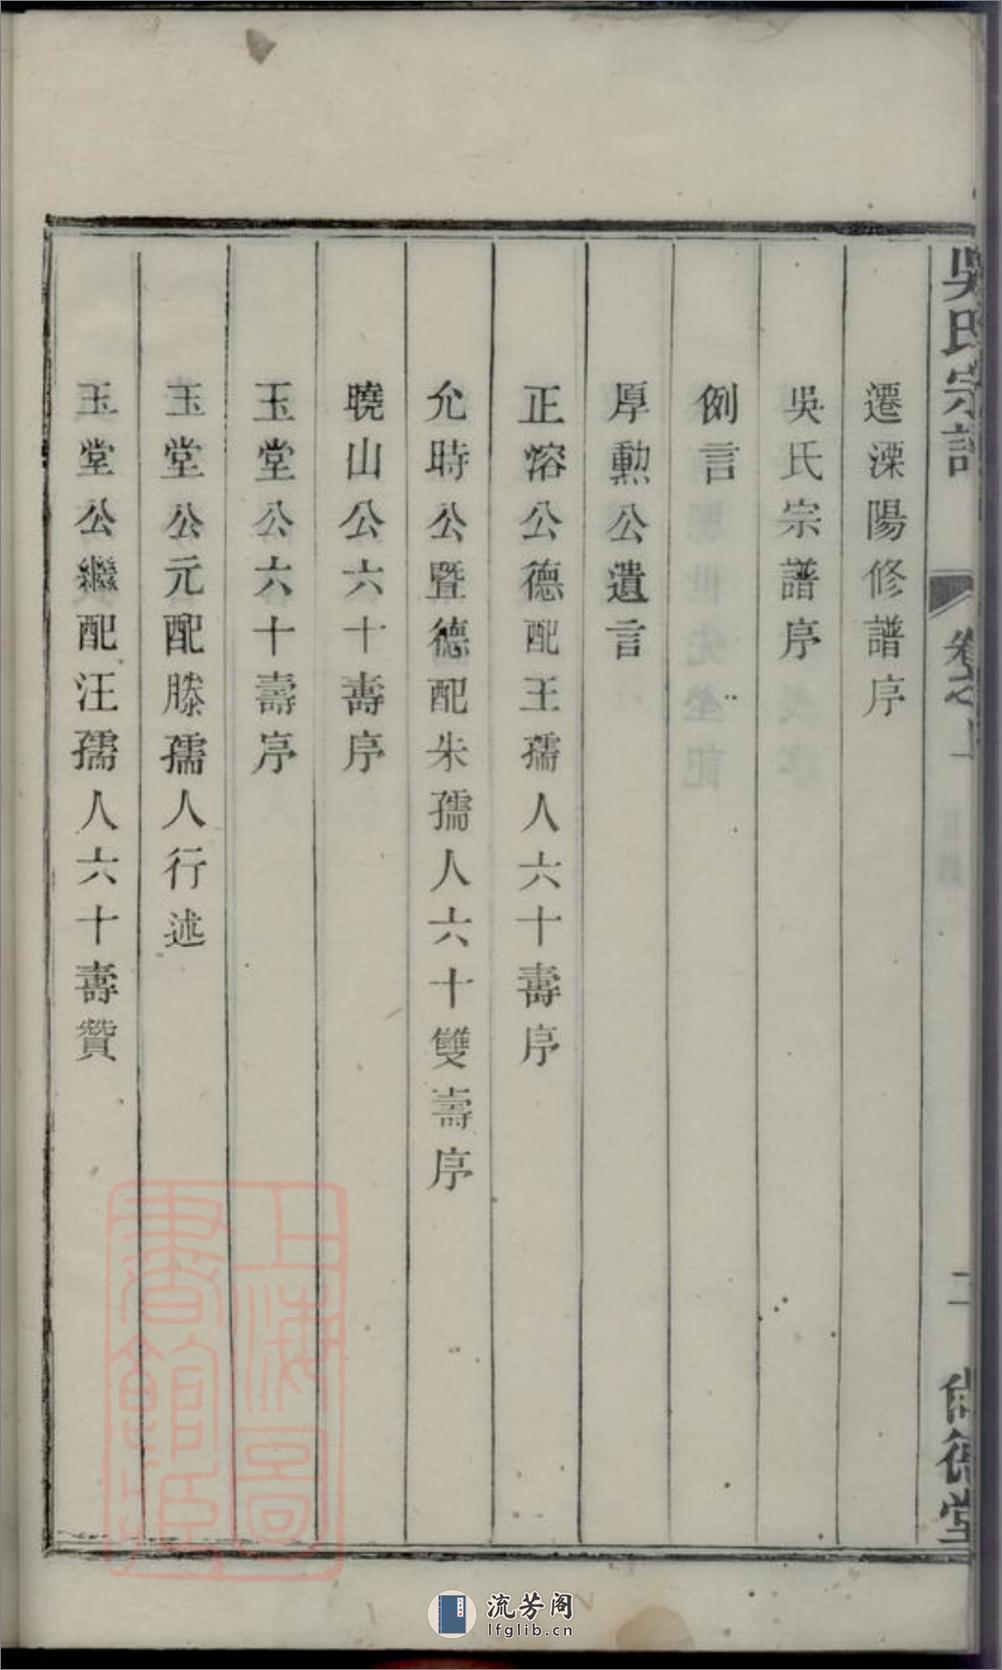 吳氏宗譜
卷之上
二
尙德堂
遷溧陽修譜序
吳氏宗譜序
例言
厚勳公遺言
正熔公德配王孺人六十壽序
允時公暨德配朱孺人六十雙壽序
曉山公六十壽序
玉堂公六十壽序
玉堂公元配滕孺人行述
玉堂公繼配汪孺人六十壽贊
上海圖書館藏
流芳阁
lfglib.cn